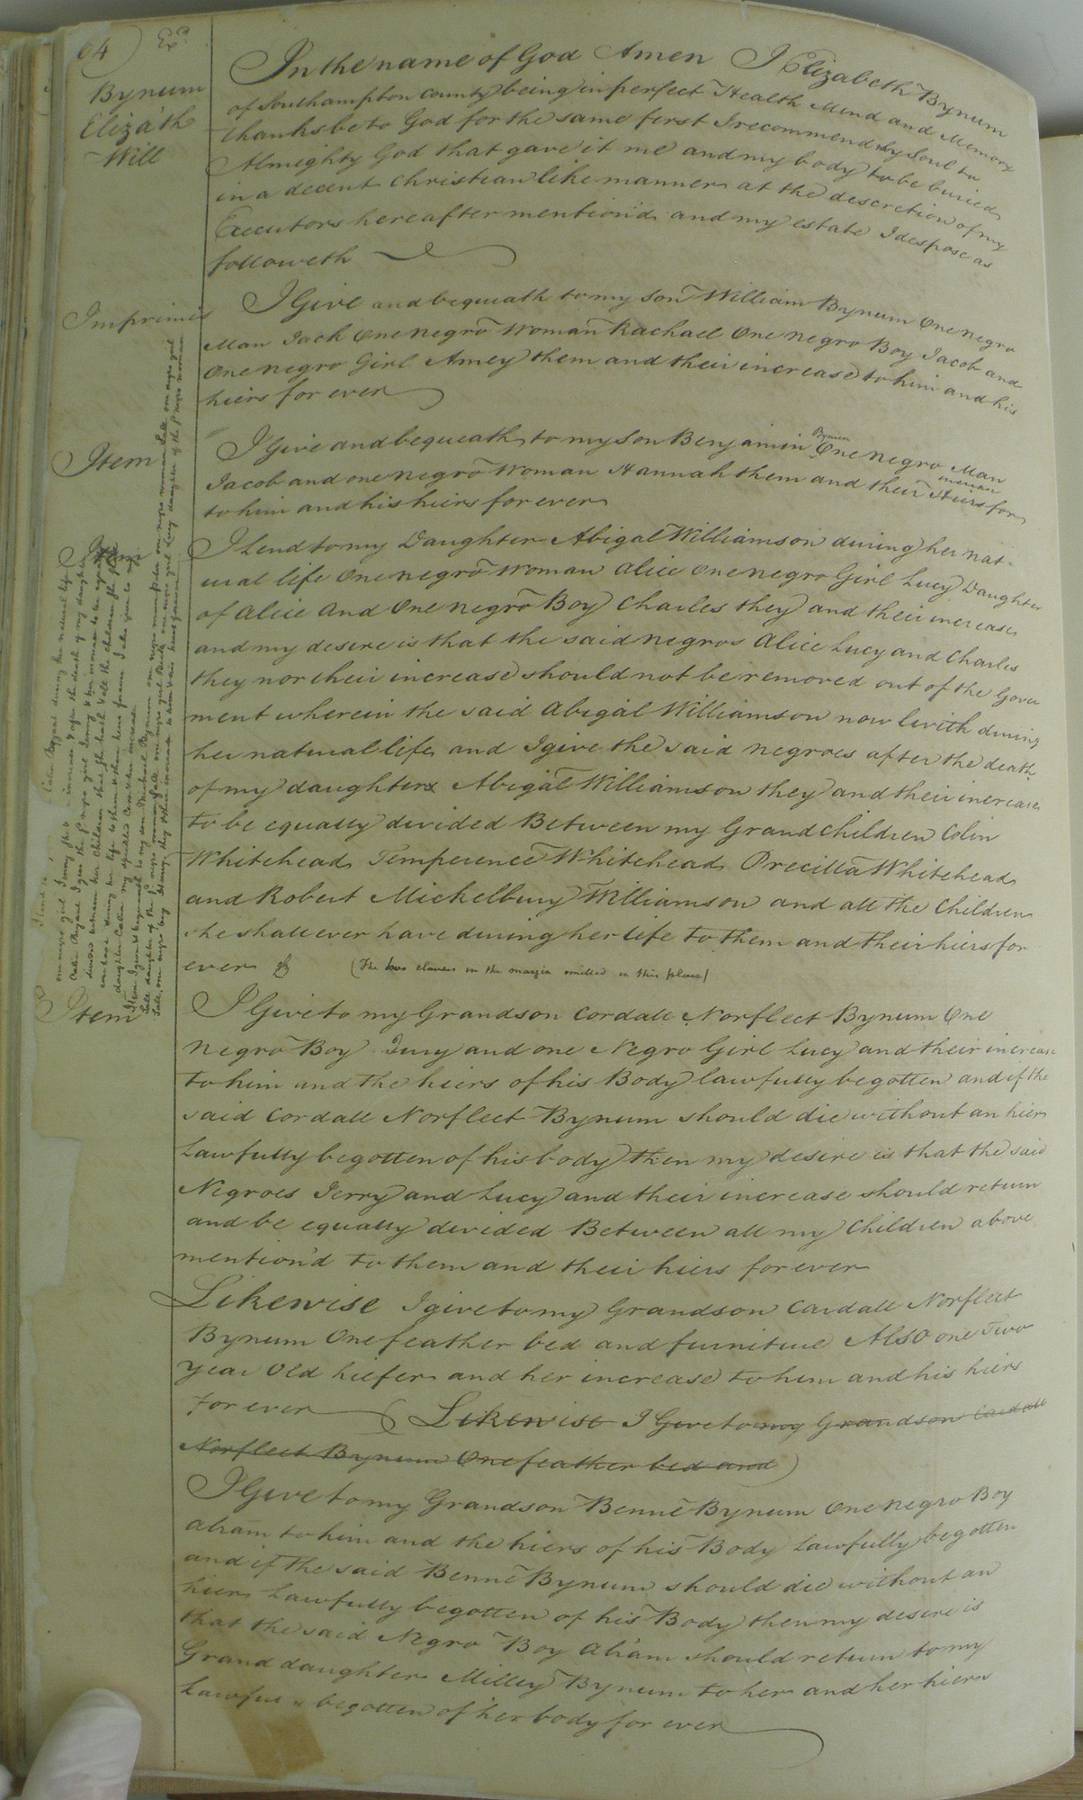 64) Exd
Bynum
Elizath
Will
In the name of God Amen I Elizabeth Bynum
of Southampton County being in perfect Health Mind and Memory
thanks be to God for the same first I recommend my Soul to
Almighty God that gave it me and my body to be buried
in a decent Christian like manner at the descretion of my
Executors hereafter mention'd and my estate I despose as
followeth
Imprimis
I Give and bequeath to my Son William Bynum One negro
Man Jack One negro Woman Rachael One negro Boy Jacob and
One negro Girl Amey them and their increase to him and his
hiers for ever
Item
I Give and bequeath to my Son Benjamin Bynum One negro Man
Jacob and one negro Woman Hannah them and their increase Hiers for
to him and his hiers for ever
Item
I Lend to my Daughter Abigal Williamson during her nat-
ural life One negro Woman Alice One negro Girl Lucy Daughter
of Alice And One negro Boy Charles they and their increase
and my desire is that the said negros Alice Lucy and Charles
they nor their increase should not be removed out of the Govern
ment wherein the said Abigal Williamson now liveth during
her natural life and I give the said negroes after the death
of my daughter Abigal Williamson they and their increase
to be equally divided Between my Grand Children Colin
Whitehead Temperence Whitehead Precilla Whitehead
and Robert Mickelbury Williamson and all the Children
she shall ever have during her life to them and their hiers for
ever (The two clauses in the margin omitted in this place)
Item
I Give to my Grandson Cordall Norfleet Bynum One
Negro Boy Jerry and one Negro Girl Lucy and their increase
to him and the hiers of his Body lawfully begotten and if the
said Cordall Norfleet Bynum should die without an hier
Lawfully begotten of his body then my desire is that the said
Negroes Jerry and Lucy and their increase should return
and be equally divided Between all my Children above
mention'd to them and their hiers for ever
Likewise I give to my Grandson Cordall Norfleet
Bynum One feather bed and furniture Also one Two
year Old hiefer and her increase to him and his hiers
for ever ( Likewise I Give to my Grandson Cordall
Norfleet Bynum One feather bed and )
I Give to my Grandson Benne Bynum One negro Boy
Abram to him and the hiers of his Body Lawfully begotten
and if the said Benne Bynum should die without an
hier Lawfully begotten of his Body then my desire is
that the said Negro Boy Abram should return to my
Grand daughter Milley Bynum to her and her hiers
Lawful begotten of her body for ever